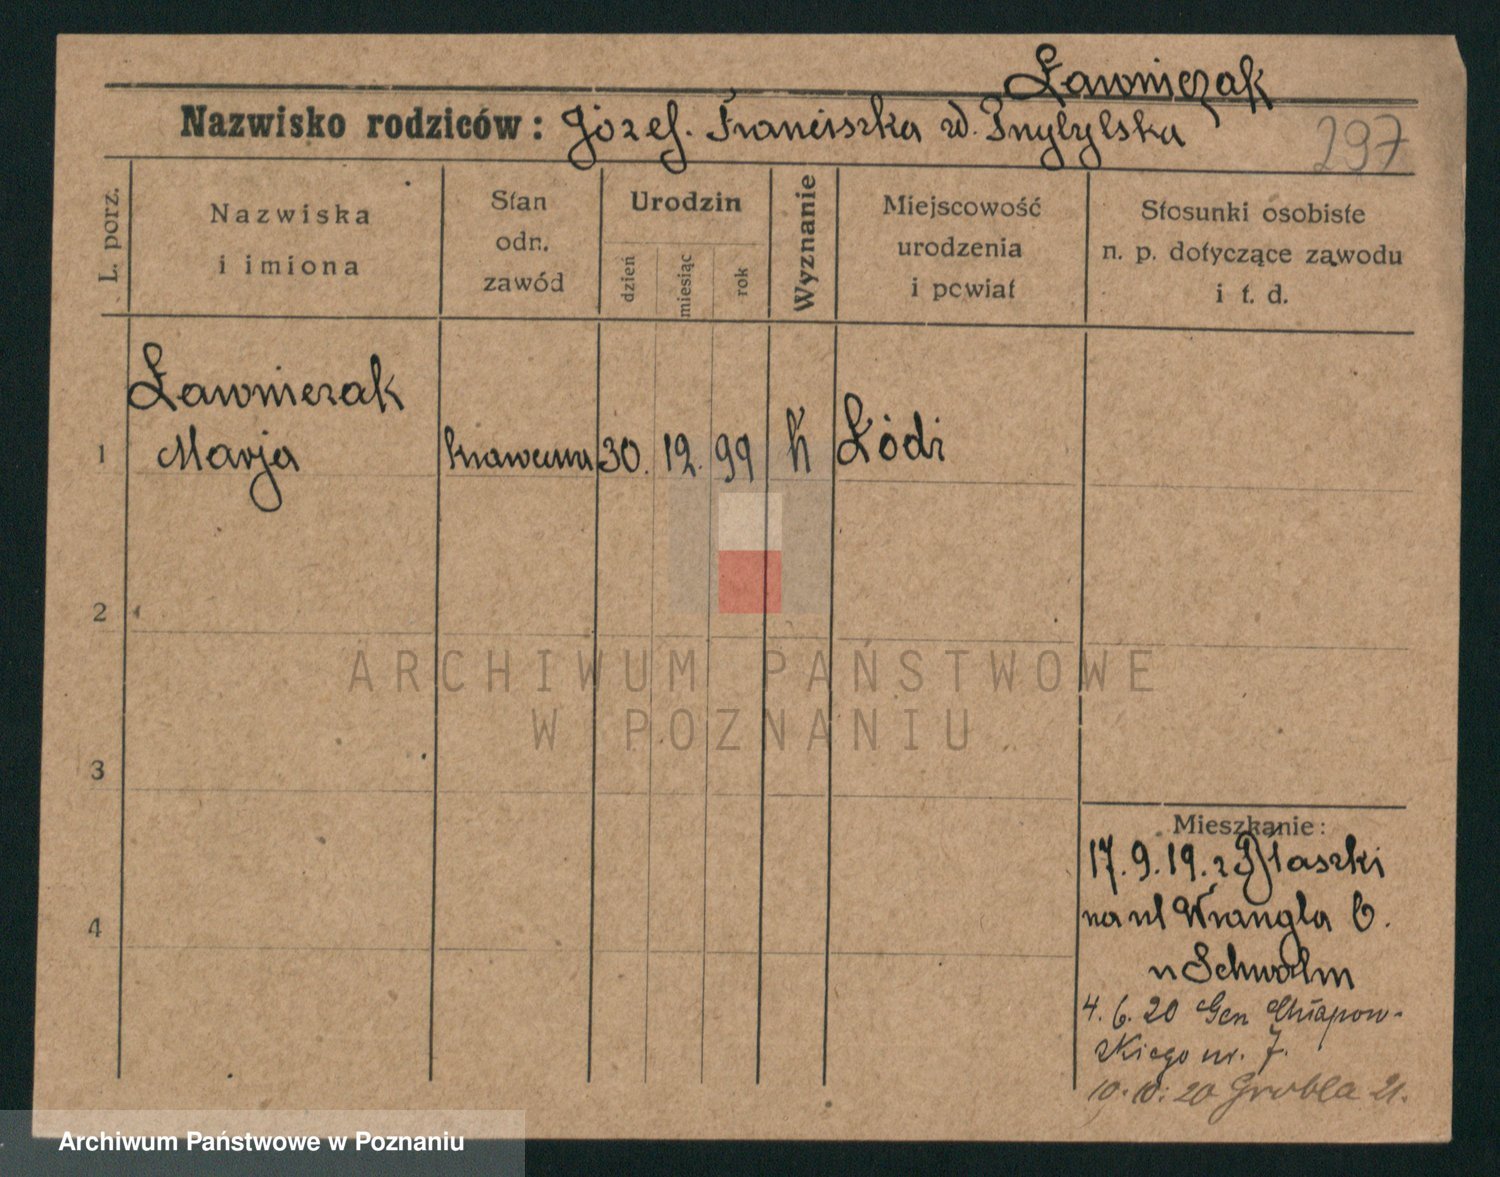 Ławniczak
Nazwisko rodziców: Józef. Franciszka zd. Przybylska
297
L. porz.
Nazwiska
i imiona
Stan
odn.
zawód
Urodzin
dzień
miesiąc
rok
Wyznanie
Miejscowość
urodzenia
i powiat
Stosunki osobiste
n. p. dotyczące zawodu
i t. d.
Ławniczak
1 Marja krawcowa 30. 12. 99 k Łódź
2
ARCHIWUM PAŃSTWOWE
W POZNANIU
3
Mieszkanie:
17.9.19. z Błaszki
4
na ul Wrangla 6.
u Schwalm
4. 6. 20 Gen Chłapow-
skiego nr. 7.
10. 20 Grobla 21.
Archiwum Państwowe w Poznaniu